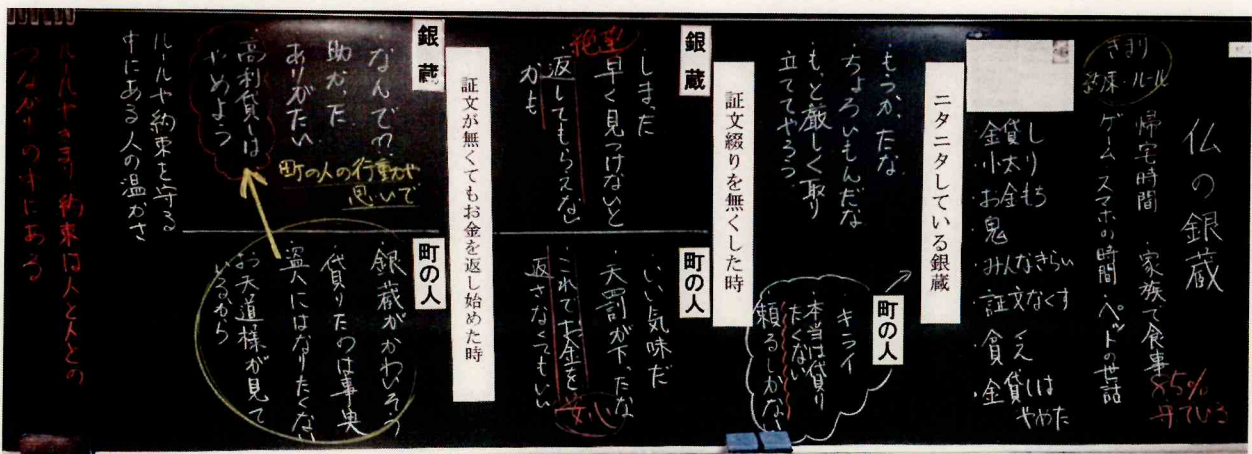 仏の銀蔵
きまり
約束・ルール
帰宅時間・家族で食事
ゲーム スマホの時間・ペットの世話
85%
守ている
金貸し
小太り
・お金もち
・鬼
・みんなきらい
・証文なくす
・金貸しは
やめた
ニタニタしている銀蔵
・もうかったな
・ちょろいもんだな
・もっと厳しく取り
立ててやろう
町の人
・キライ
・本当は貸り
たくない
頼るしかない
証文綴りを無くした時
銀蔵
・しまった
絶望
・早く見つけないと
・返してもらえない
かも
町の人
・いい気味だ
・天罰が下ったな
・これでお金を
返さなくてもいい
安心
証文が無くてもお金を返し始めた時
銀蔵
・なんでだ
助かった
ありがたい
高利貸しは
やめよう
町の人の行動や
思いで
町の人
銀蔵がかわいそう
貸りたのは事実
盗人にはなりたくない
お天道様が見て
いるから
ルールや約束を守る
中にある人の温かさ
ルールやきまり約束は人と人との
つながりの中にある